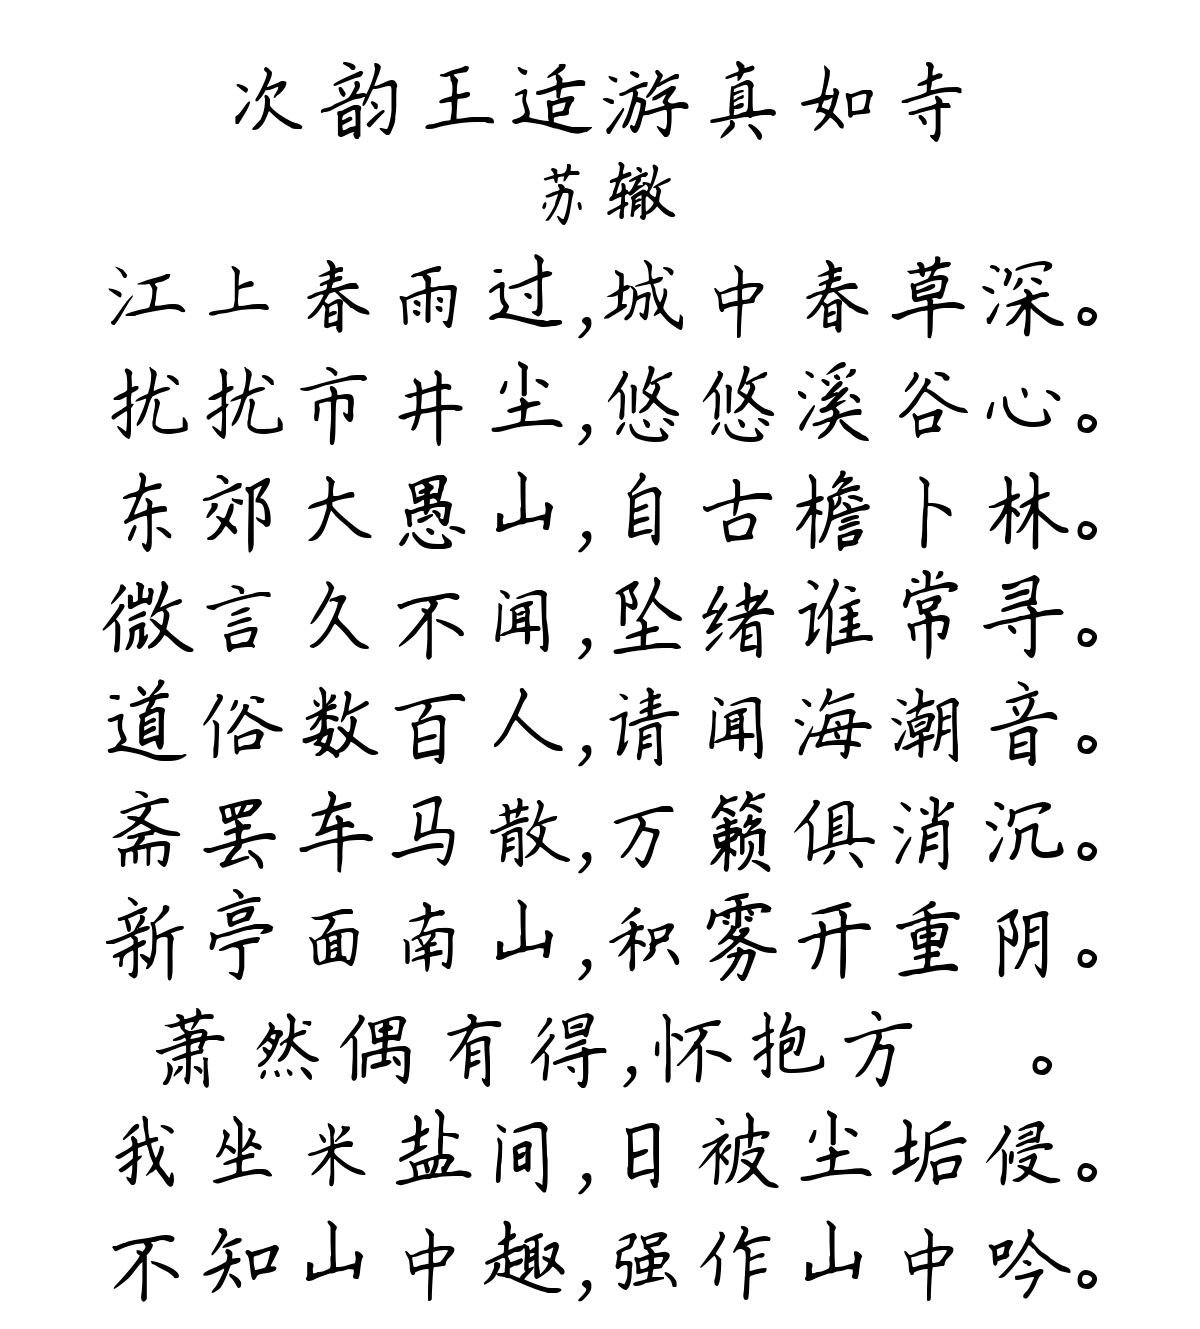 次韵王适游真如寺
苏辙
江上春雨过,城中春草深。
扰扰市井尘,悠悠溪谷心。
东郊大愚山,自古檐卜林。
微言久不闻,坠绪谁常寻。
道俗数百人,请闻海潮音。
斋罢车马散,万籁俱消沉。
新亭面南山,积雾开重阴。
萧然偶有得,怀抱方 。
我坐米盐间,日被尘垢侵。
不知山中趣,强作山中吟。